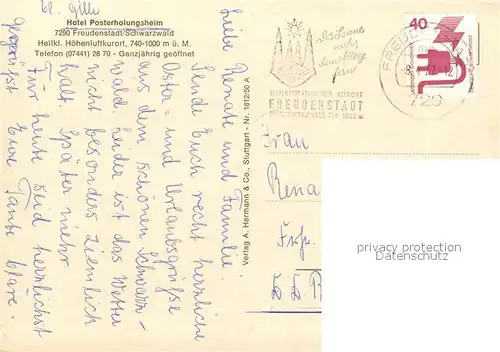 Hotel Posterholungsheim
7290 Freudenstadt/Schwarzwald
Heilkl. Höhenluftkurort, 740-1000 m ü. M.
Telefon (07441) 28 70 - Ganzjährig geöffnet
Liebe Renate und Familie.
Sende Euch recht herzliche
Oster- und Urlaubsgrüsse
aus dem schönen Schwarz-
wald leider ist das Wetter
nicht besonders ziemlich
kalt. Später mehr
Für heute seid herzlichst
gegrüsst Eure Tante Klare.
Verlag A. Hermann & Co., Stuttgart - Nr. 1812/50 A
der Sonne
FREUDENSTADT
IM SCHWARZWALD 740 1000 m
FREUD
729
40
Frau
Rena
privacy protection
watermark